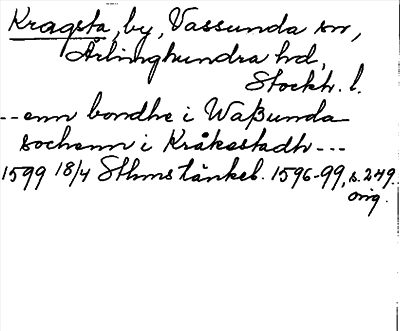 Kragsta, by, Vassunda sn,
Ärlinghundra hd,
Stockh. l.
--enn bondhe i Waßunda
sochenn i Kråkestadh---
1599 18/4 Sthms tänkeb. 1596-99, s. 249.
orig.